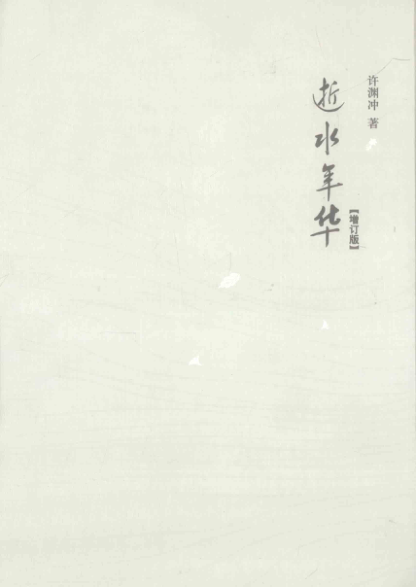 许渊冲 著
逝水年华
【增订版】